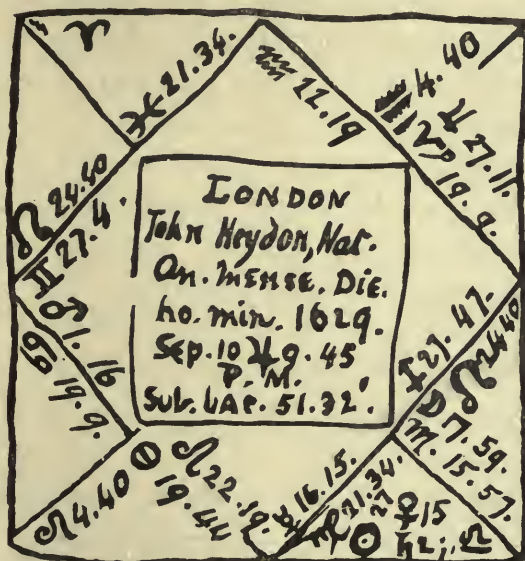 ♈
♓ 21.34.
♒ 22.19
4.40
♑ ♃ 27.11.
19.9.
☊ 24.40
♊ 27.4.
♂ 1.16
♋ 19.9.
LONDON
John Heydon, Nat.
An. Mense. Die.
ho. min. 1629.
Sep. 10 ♃ 9.45
P.M.
Sub. Lat. 51.32'.
27.47.
24.40
7.59.
♏ 15.57.
♌ 4.40
19.44
♌ 22.19.
16.15.
♍ 21.34.
27
♀ 15
☉ ♄ 2; ♎